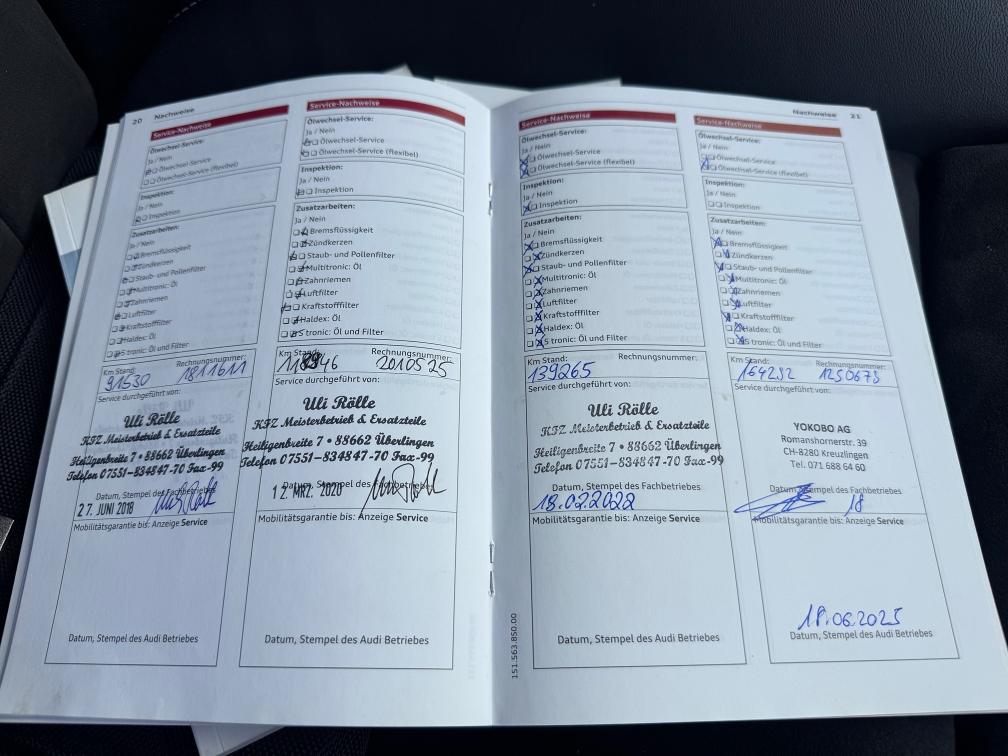 20 Nachweise
Service-Nachweise
Ölwechsel-Service:
Ja / Nein
Ölwechsel-Service
Ölwechsel-Service (flexibel)
Inspektion:
Ja / Nein
Inspektion
Zusatzarbeiten:
Ja / Nein
Bremsflüssigkeit
Zündkerzen
Staub- und Pollenfilter
Multitronic: Öl
Zahnriemen
Luftfilter
Kraftstofffilter
Haldex: Öl
S tronic: Öl und Filter
Km Stand: Rechnungsnummer:
91530 1811611
Service durchgeführt von:
Uli Rölle
KFZ Meisterbetrieb & Ersatzteile
Heiligenbreite 7 • 88662 Überlingen
Telefon 07551-834847-70 Fax-99
Datum, Stempel des Fachbetriebes
27. JUNI 2018
Mobilitätsgarantie bis: Anzeige Service
Datum, Stempel des Audi Betriebes
Service-Nachweise
Ölwechsel-Service:
Ja / Nein
Ölwechsel-Service
Ölwechsel-Service (flexibel)
Inspektion:
Ja / Nein
Inspektion
Zusatzarbeiten:
Ja / Nein
Bremsflüssigkeit
Zündkerzen
Staub- und Pollenfilter
Multitronic: Öl
Zahnriemen
Luftfilter
Kraftstofffilter
Haldex: Öl
S tronic: Öl und Filter
Km Stand: Rechnungsnummer:
2010525
Service durchgeführt von:
Uli Rölle
KFZ Meisterbetrieb & Ersatzteile
Heiligenbreite 7 • 88662 Überlingen
Telefon 07551-834847-70 Fax-99
Datum, Stempel des Fachbetriebes
12. MRZ. 2020
Mobilitätsgarantie bis: Anzeige Service
Datum, Stempel des Audi Betriebes
Nachweise 21
Service-Nachweise
Ölwechsel-Service:
Ja / Nein
Ölwechsel-Service
Ölwechsel-Service (flexibel)
Inspektion:
Ja / Nein
Inspektion
Zusatzarbeiten:
Ja / Nein
Bremsflüssigkeit
Zündkerzen
Staub- und Pollenfilter
Multitronic: Öl
Zahnriemen
Luftfilter
Kraftstofffilter
Haldex: Öl
S tronic: Öl und Filter
Km Stand: Rechnungsnummer:
139265
Service durchgeführt von:
Uli Rölle
KFZ Meisterbetrieb & Ersatzteile
Heiligenbreite 7 • 88662 Überlingen
Telefon 07551-834847-70 Fax-99
Datum, Stempel des Fachbetriebes
18.02.2022
Mobilitätsgarantie bis: Anzeige Service
Datum, Stempel des Audi Betriebes
151.563.850.00
Service-Nachweise
Ölwechsel-Service:
Ja / Nein
Ölwechsel-Service
Ölwechsel-Service (flexibel)
Inspektion:
Ja / Nein
Inspektion
Zusatzarbeiten:
Ja / Nein
Bremsflüssigkeit
Zündkerzen
Staub- und Pollenfilter
Multitronic: Öl
Zahnriemen
Luftfilter
Kraftstofffilter
Haldex: Öl
S tronic: Öl und Filter
Km Stand: Rechnungsnummer:
164292 1250673
Service durchgeführt von:
YOKOBO AG
Romanshornerstr. 39
CH-8280 Kreuzlingen
Tel. 071 688 64 60
Datum, Stempel des Fachbetriebes
18
Mobilitätsgarantie bis: Anzeige Service
18.06.2025
Datum, Stempel des Audi Betriebes